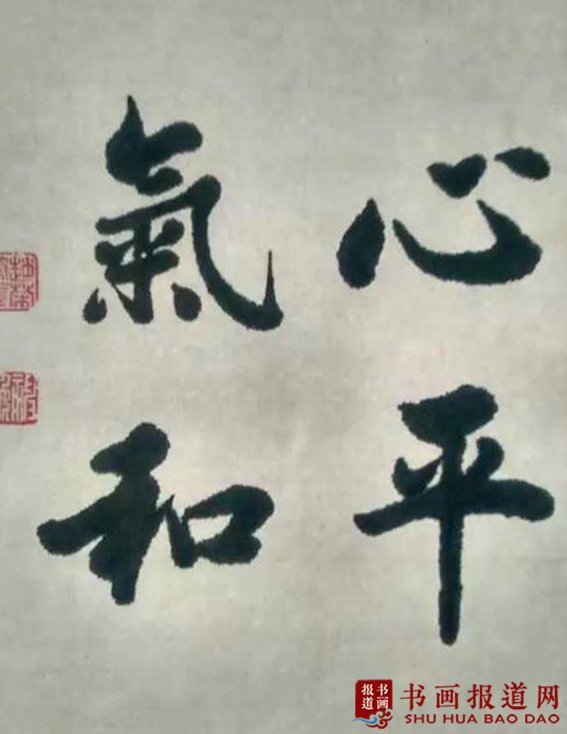 心平
氣和
书画
报道
书画报道网
SHU HUA BAO DAO